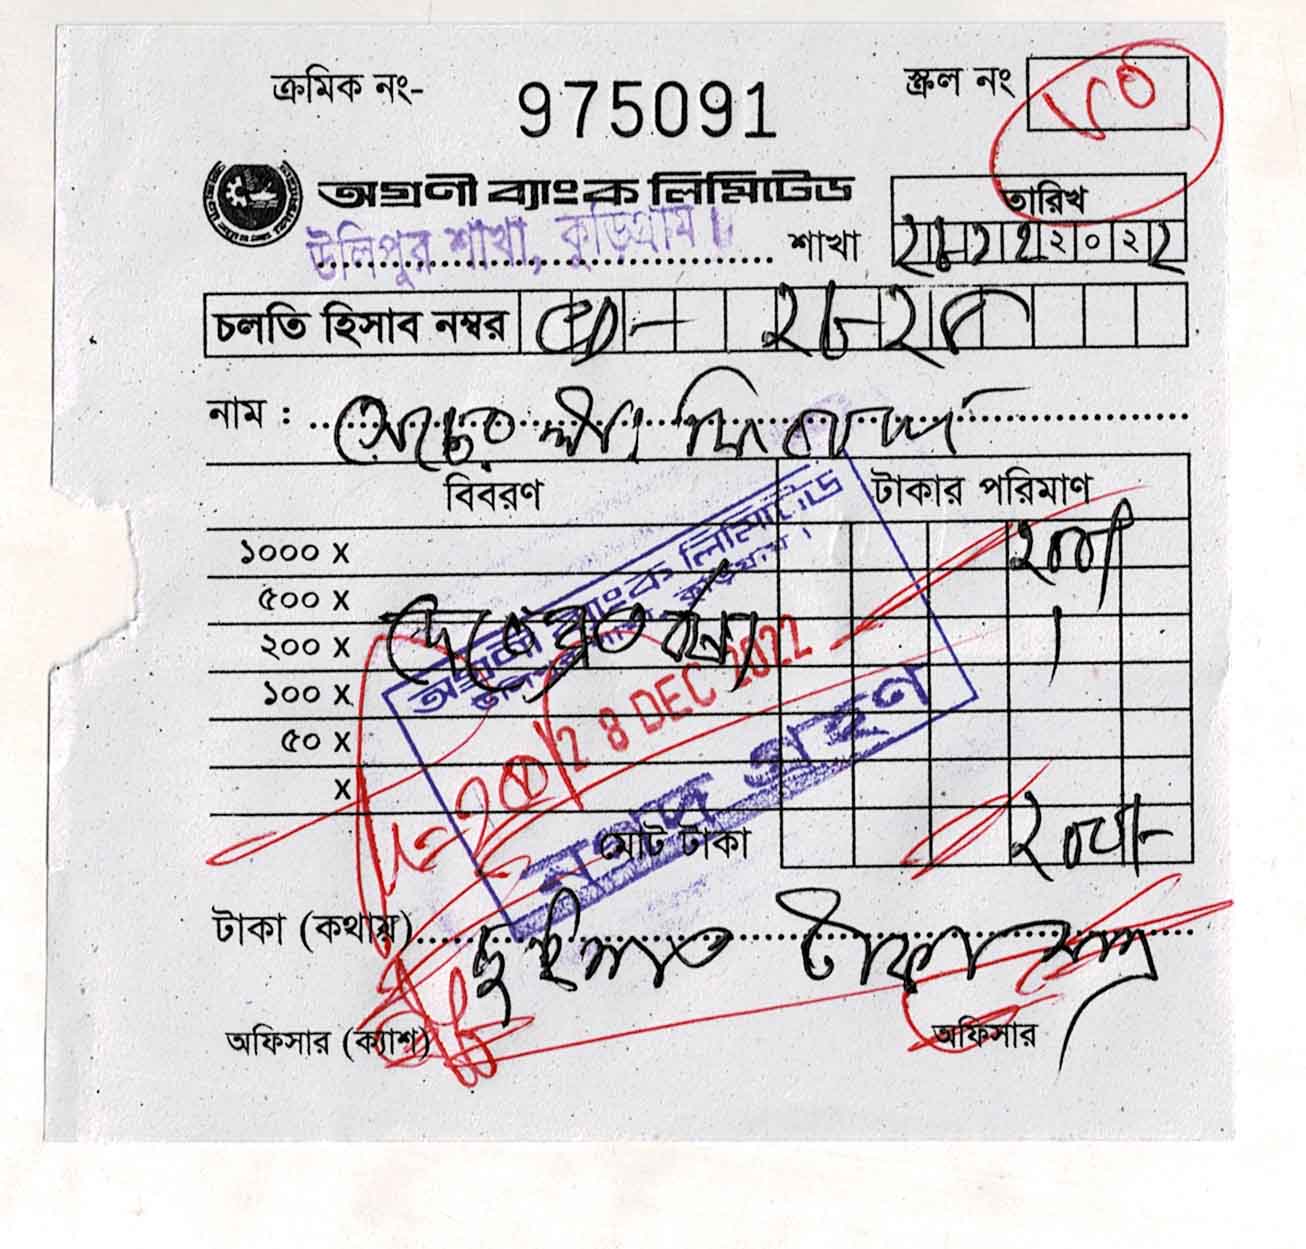 ক্রমিক নং- 975091
স্ক্রল নং ৮০
অগ্রণী ব্যাংক লিমিটেড
উলিপুর শাখা, কুড়িগ্রাম।
শাখা
তারিখ
২৮ ১২ ২০২২
চলতি হিসাব নম্বর CD-
নাম :
বিবরণ টাকার পরিমাণ
১০০০ X ২০০/
৫০০ X
২০০ X
১০০ X
৫০ X
X
অগ্রণী ব্যাংক লিমিটেড
উলিপুর শাখা, কুড়িগ্রাম।
28 DEC 2022
নগদ গ্রহণ
মোট টাকা ২০০/-
টাকা (কথায়) দুইশত টাকা মাত্র
অফিসার (ক্যাশ) অফিসার